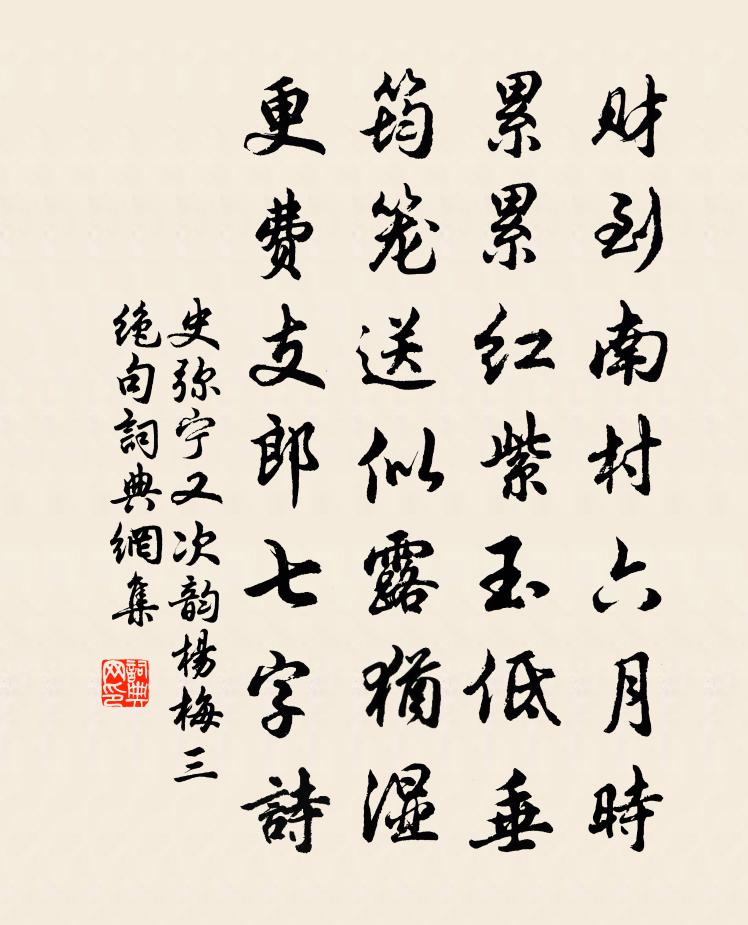 财到南村六月時
累累红紫玉低垂
筠笼送似露猶湿
更费支郎七字詩
史弥宁又次韵楊梅三
绝句詞典網集
詞典
网印